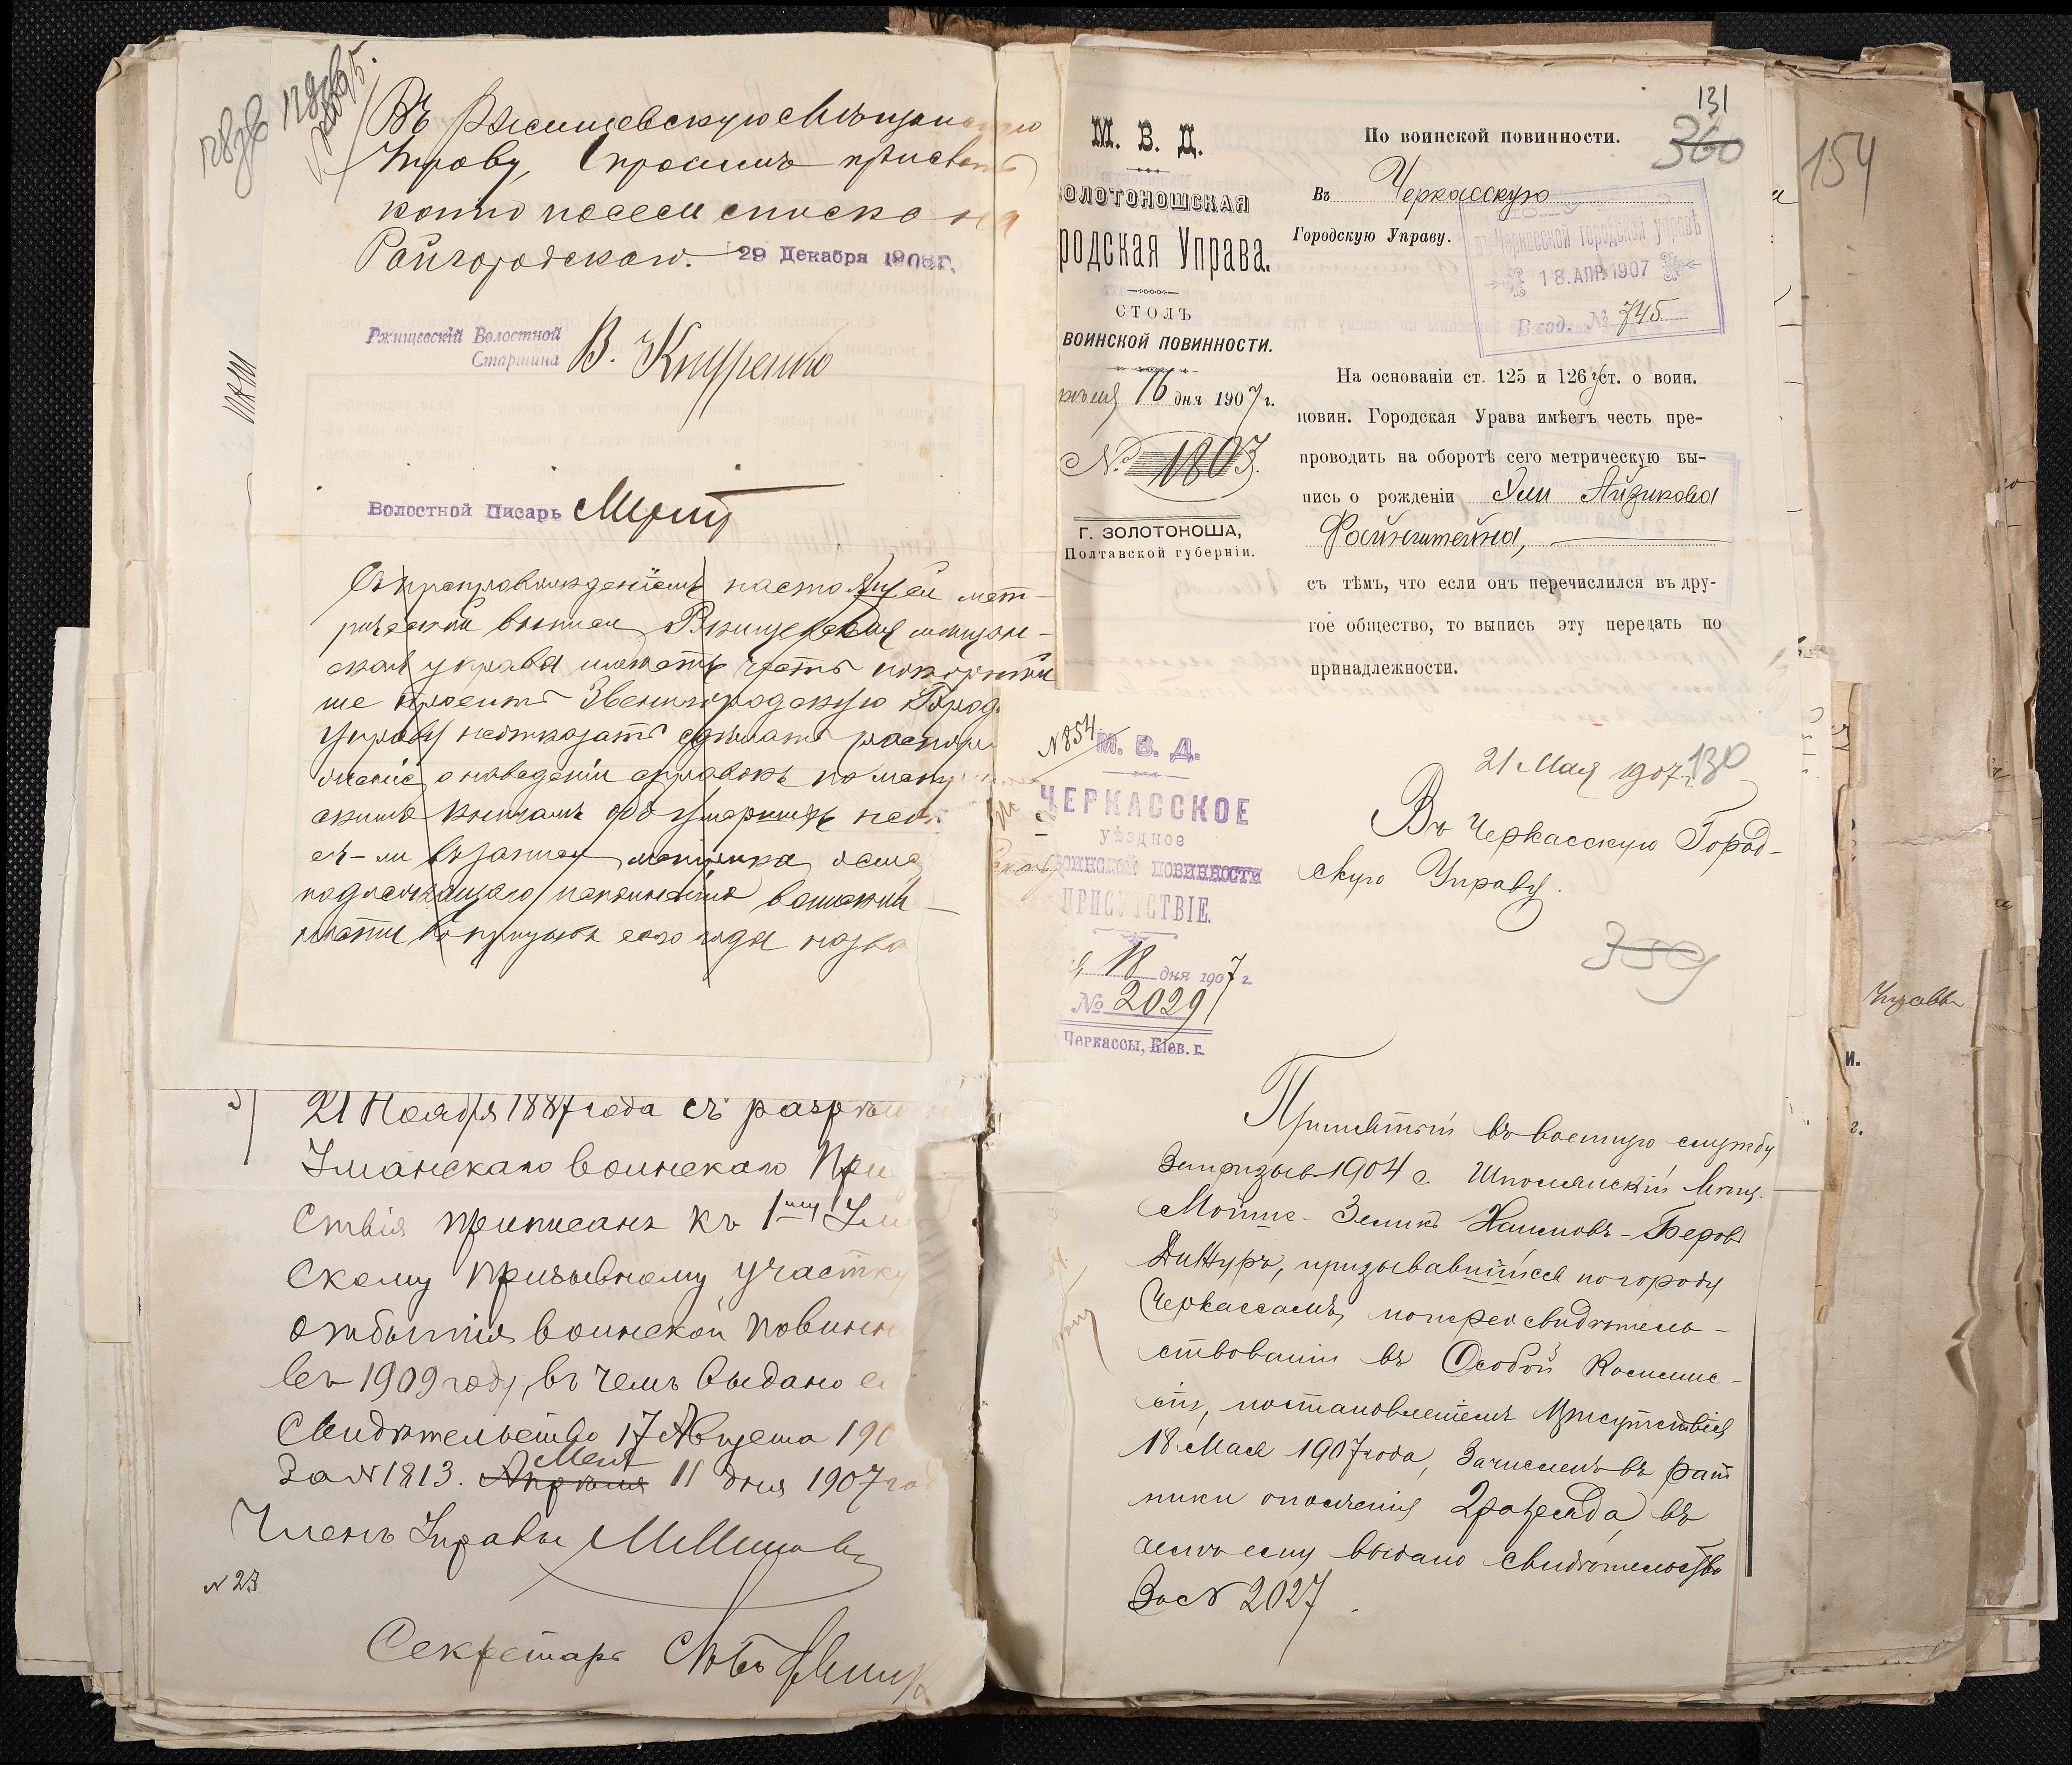 Въ Ржищевскую Мѣщанскую
Управу, съ просьбою
копію посем. списка на
Райгородскаго. 29 Декабря 1906 г.
Ржищевскій Волостной
Старшина В. Кнуренко
Волостной Писарь
Съ препровожденіемъ настоящей мет-
рической выписи Ржищевская мѣщан-
ская управа имѣетъ честь покорнѣй
ше просить Звенигородскую Город.
Управу неотказать сдѣлать распоря
женіе о наведеніи справокъ по
книгамъ объ умершихъ
ли
подлежащаго исполненію воинской
въ призывъ сего года
21 Ноября 1887 года съ разрѣш
Уманскаго воинскаго При
ствія приписанъ къ 1му Ума
скому призывному участку
отбытія воинской повинн
въ 1909 году, въ чемъ выдано е
Свидѣтельство 17 Августа 190
за № 1813. Апрѣля Мая 11 дня 1907 год
Членъ Управы
№ 23
Секретарь
131
360
154
М. В. Д.
ЗОЛОТОНОШСКАЯ
родская Управа.
СТОЛЪ
ВОИНСКОЙ ПОВИННОСТИ.
16 дня 1907 г.
№ 1803.
Г. ЗОЛОТОНОША,
Полтавской губерніи.
По воинской повинности.
Въ Черкасскую
Городскую Управу.
въ Черкасской городской управѣ
18. АПР. 1907
Вход. № 745
На основаніи ст. 125 и 126 уст. о воин.
повин. Городская Урава имѣетъ честь пре-
проводить на оборотѣ сего метрическую вы-
пись о рожденіи Эли Айзикова
Файнштейна,
съ тѣмъ, что если онъ перечислился въ дру-
гое общество, то выпись эту передать по
принадлежности.
№ 854
М. В. Д.
ЧЕРКАССКОЕ
уѣздное
воинской повинности
ПРИСУТСТВІЕ.
18 дня 1907 г.
№ 2029
Черкассы, Кіев. г.
21 Мая 1907 г. 130
Въ Черкасскую Город-
скую Управу.
359
Принятый въ военную службу
въ призывъ 1904 г. Шполянскій Мѣщ.
Мойше-Зелик Хаимовъ-Беровъ
Динуръ, призывавшійся по городу
Черкассамъ, по пересвидѣтель-
ствованіи въ Особой Коммис-
сіи, постановленіемъ Присутствія
18 Мая 1907 года, зачисленъ въ рат
ники ополченія 2 разряда, въ
чемъ ему выдано свидѣтельство
За № 2027.
Управы
и.
г.